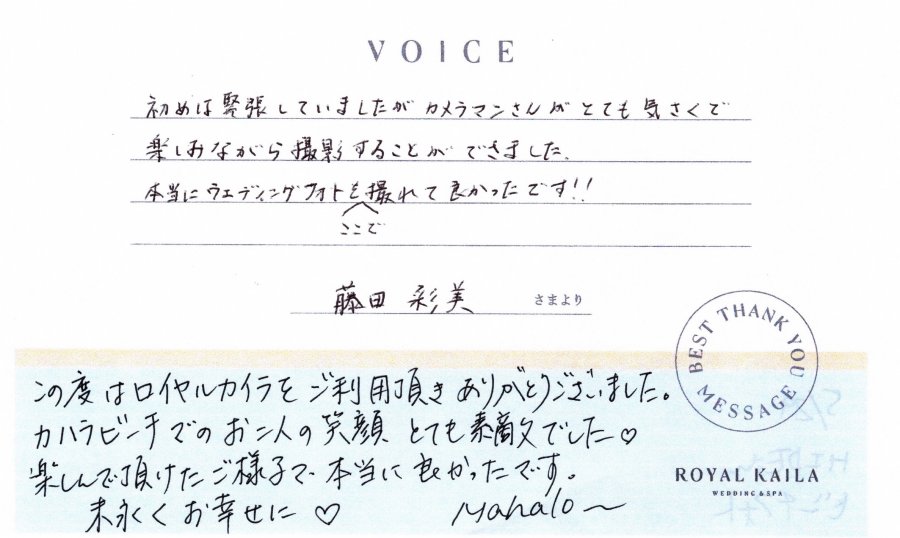 VOICE
初めは緊張していましたが カメラマンさんが とても 気さくで
楽しみながら 撮影することが できました。
本当にウエディングフォトを撮れて 良かったです!!
ここで
藤田 彩美 さまより
BEST THANK YOU MESSAGE
この度はロイヤルカイラをご利用頂きありがとうございました。
カハラビーチでのお二人の笑顔 とても素敵でした♡
楽しんで頂けたご様子で、本当に良かったです。
末永くお幸せに ♡ Mahalo～
ROYAL KAILA
WEDDING & SPA